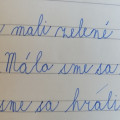 mali zelené
Málo sme sa
sme sa hrali